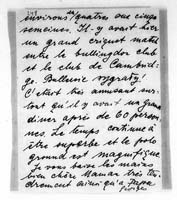 environs quatres ou cinq
semaines. Il-y avait hier
un grand criquet match
entre le bullingdon club
et le club de Cambrid-
ge. Bullerie
C'était très amusant sur-
tout qu'il y avait un grand
diner après de 60 person-
nes. Le temps continue à
être superbe et le polo
ground est magnifique
Je vous baise les mains
bien chère Maman très ten-
drement ainsi qu'à Papa